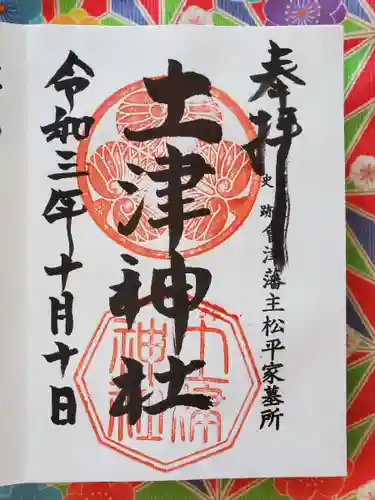 奉拝
史跡會津藩主松平家墓所
土津神社
令和三年十月十日
土津神社